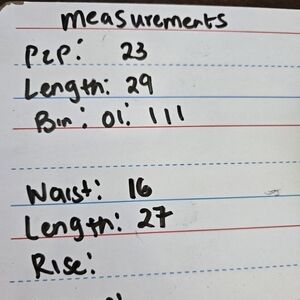 measurements
P2P: 23
Length: 29
Bin: 01: 111
Waist: 16
Length: 27
Rise: